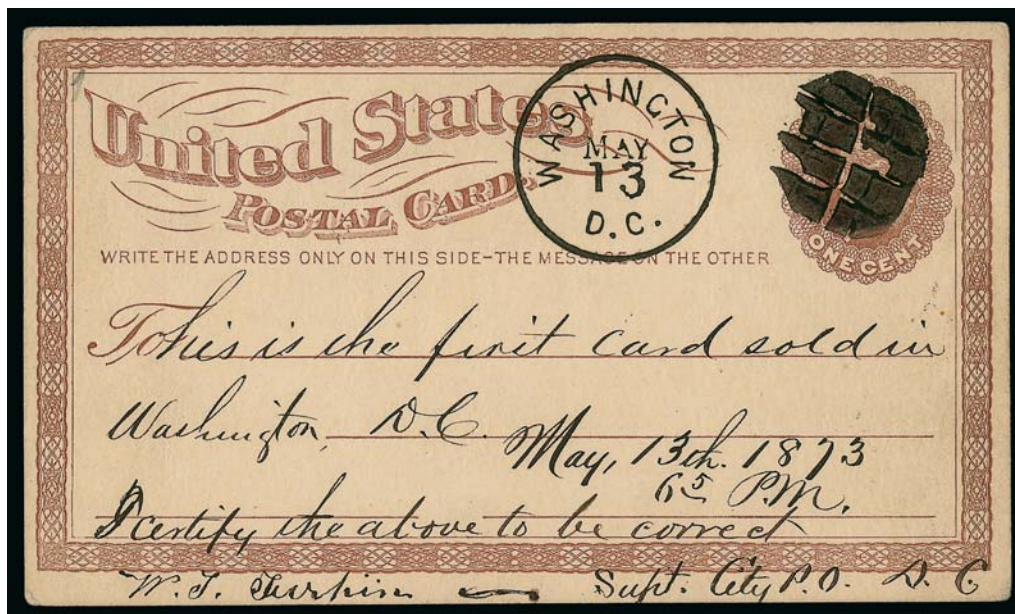 United States
POSTAL CARD.
WASHINGTON
MAY
13
D.C.
ONE CENT
WRITE THE ADDRESS ONLY ON THIS SIDE-THE MESSAGE ON THE OTHER
This is the first card sold in
Washington, D.C.
May, 13th. 1873
6⁵ P.M.
I certify the above to be correct
W. J.
Supt. City P.O. D.C